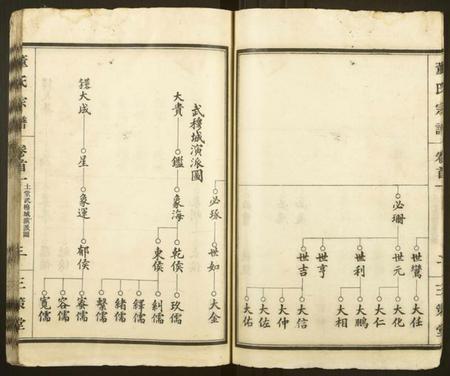 董氏宗譜
卷首一
三策堂
必珊
世鸞
世元
世利
世亨
世吉
大任
大化
大仁
大鵬
大相
大信
大仲
大佐
大佑
必琢
世如
大金
武穆城演派圖
大貴
鑑
象海
乾侯
東侯
玖儒
釗儒
鐸儒
緒儒
鏧儒
大成
星
象運
郁侯
容儒
寬儒
董氏宗譜
卷首一
土堂武穆城演派圖
三
三策堂